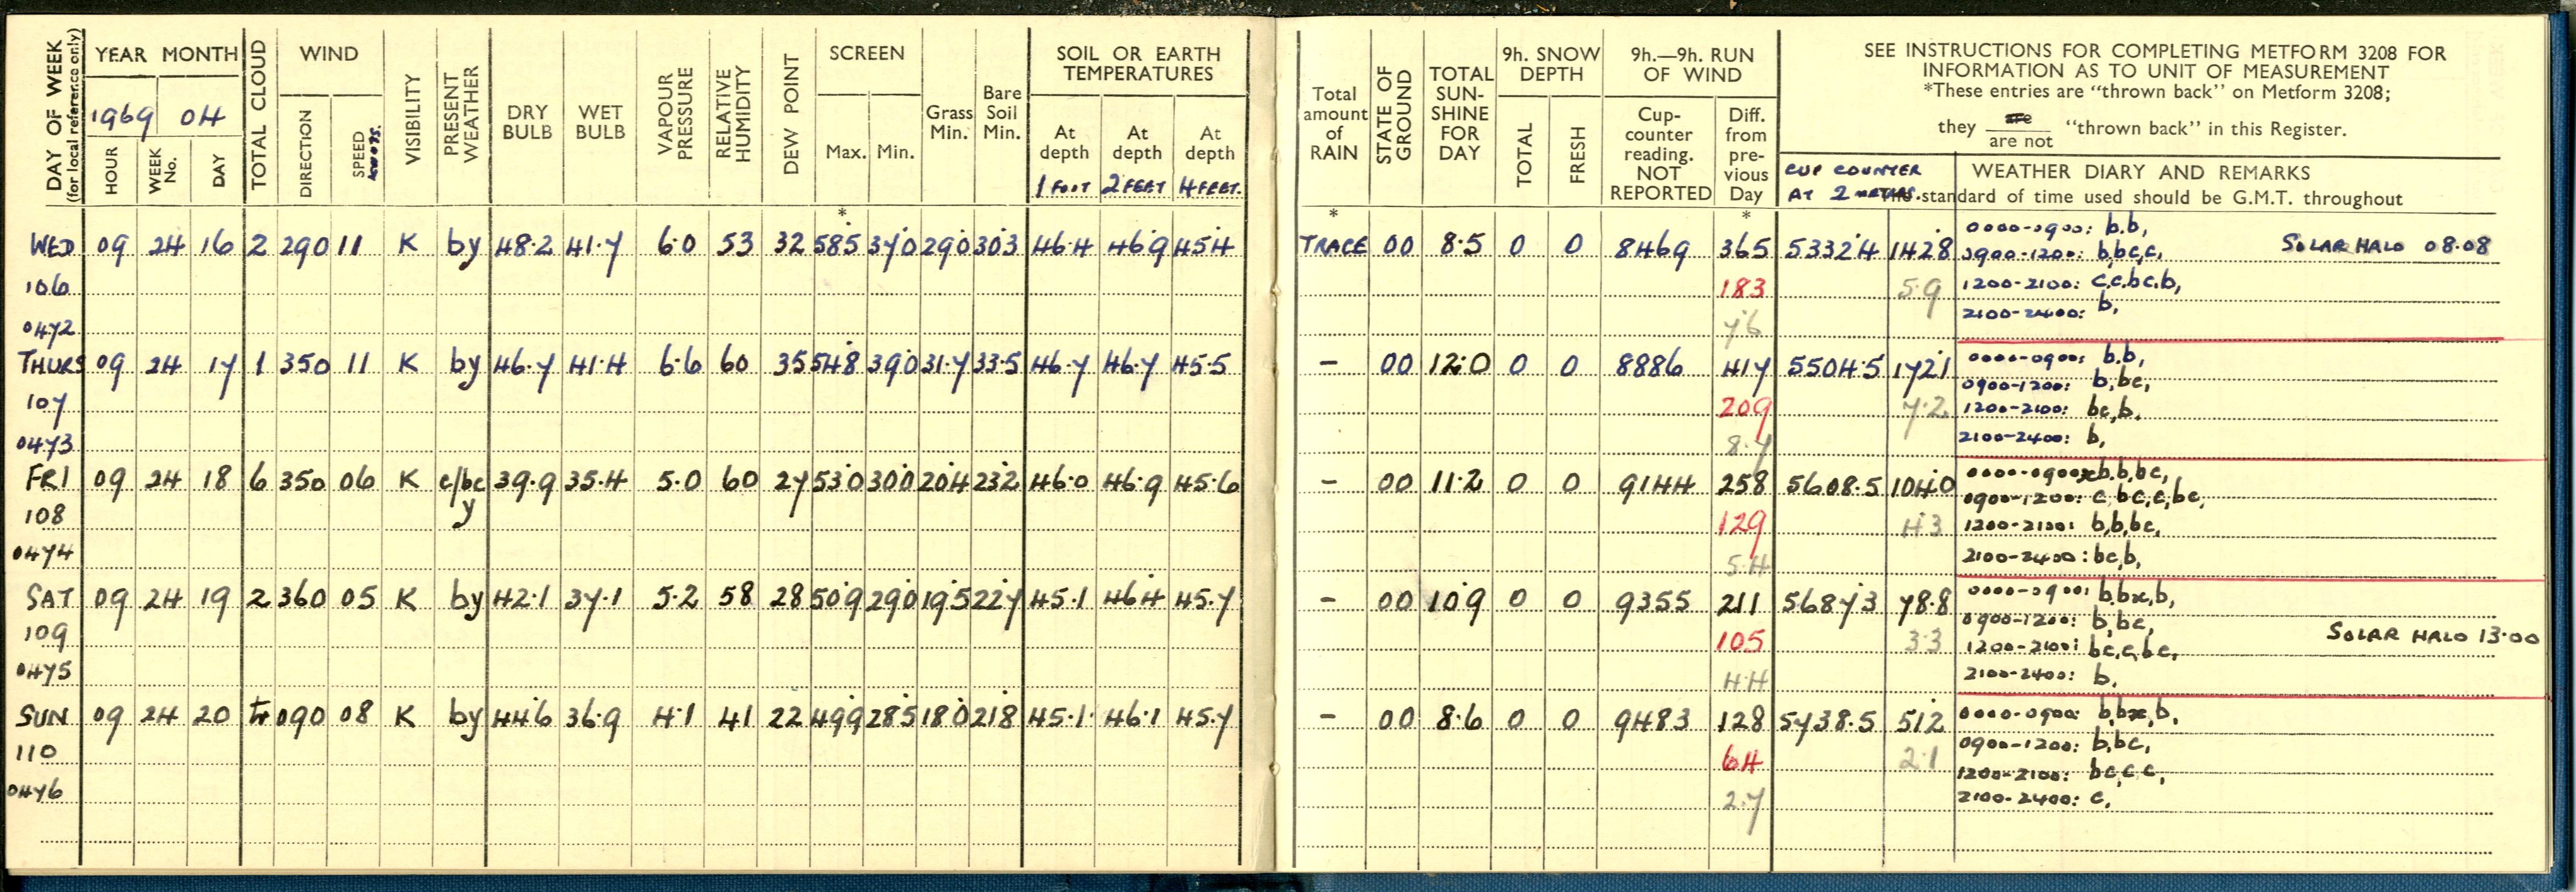 DAY OF WEEK
(for local reference only)
YEAR MONTH
1969 04
HOUR
WEEK No.
DAY
TOTAL CLOUD
WIND
DIRECTION
SPEED KNOTS.
VISIBILITY
PRESENT WEATHER
DRY BULB
WET BULB
VAPOUR PRESSURE
RELATIVE HUMIDITY
DEW POINT
SCREEN
Max. Min.
*
Grass Min.
Bare Soil Min.
SOIL OR EARTH TEMPERATURES
At depth 1 FOOT
At depth 2 FEET
At depth 4 FEET.
WED 09 24 16 2 290 11 K by 48.2 41.7 6.0 53 32 58.5 37.0 29.0 30.3 46.4 46.9 45.4
106
0472
THURS 09 24 17 1 350 11 K by 46.7 41.4 6.6 60 35 54.8 39.0 31.7 33.5 46.7 46.7 45.5
107
0473
FRI 09 24 18 6 350 06 K c/bc y 39.9 35.4 5.0 60 27 53.0 30.0 20.4 23.2 46.0 46.9 45.6
108
0474
SAT 09 24 19 2 360 05 K by 42.1 37.1 5.2 58 28 50.9 29.0 19.5 22.7 45.1 46.4 45.7
109
0475
SUN 09 24 20 tr 090 08 K by 44.6 36.9 4.1 41 22 49.9 28.5 18.0 21.8 45.1 46.1 45.7
110
0476
Total amount of RAIN
*
STATE OF GROUND
TOTAL SUN-SHINE FOR DAY
9h. SNOW DEPTH
TOTAL
FRESH
9h.—9h. RUN OF WIND
Cup-counter reading. NOT REPORTED
Diff. from pre-vious Day
*
SEE INSTRUCTIONS FOR COMPLETING METFORM 3208 FOR
INFORMATION AS TO UNIT OF MEASUREMENT
*These entries are "thrown back" on Metform 3208;
they are / are not "thrown back" in this Register.
CUP COUNTER
AT 2 METRES.
WEATHER DIARY AND REMARKS
standard of time used should be G.M.T. throughout
TRACE 00 8.5 0 0 8469 365 5332.4 142.8 0000-0900: b.b,
0900-1200: b,bc,c, SOLAR HALO 08.08
183 5.9 1200-2100: c,c,bc,b,
7.6 2100-2400: b,
– 00 12.0 0 0 8886 417 5504.5 172.1 0000-0900: b.b,
0900-1200: b,bc,
209 7.2 1200-2100: bc,b.
8.7 2100-2400: b,
– 00 11.2 0 0 9144 258 5608.5 104.0 0000-0900: b.b,bc,
0900-1200: c,bc,c,bc,
129 4.3 1200-2100: b,b,bc,
5.4 2100-2400: bc,b,
– 00 10.9 0 0 9355 211 5687.3 78.8 0000-0900: b,bx,b,
0900-1200: b,bc,
105 3.3 1200-2100: bc,c,bc, SOLAR HALO 13.00
4.4 2100-2400: b.
– 00 8.6 0 0 9483 128 5738.5 51.2 0000-0900: b,bx,b,
0900-1200: b,bc,
64 2.1 1200-2100: bc,c c,
2.7 2100-2400: c,